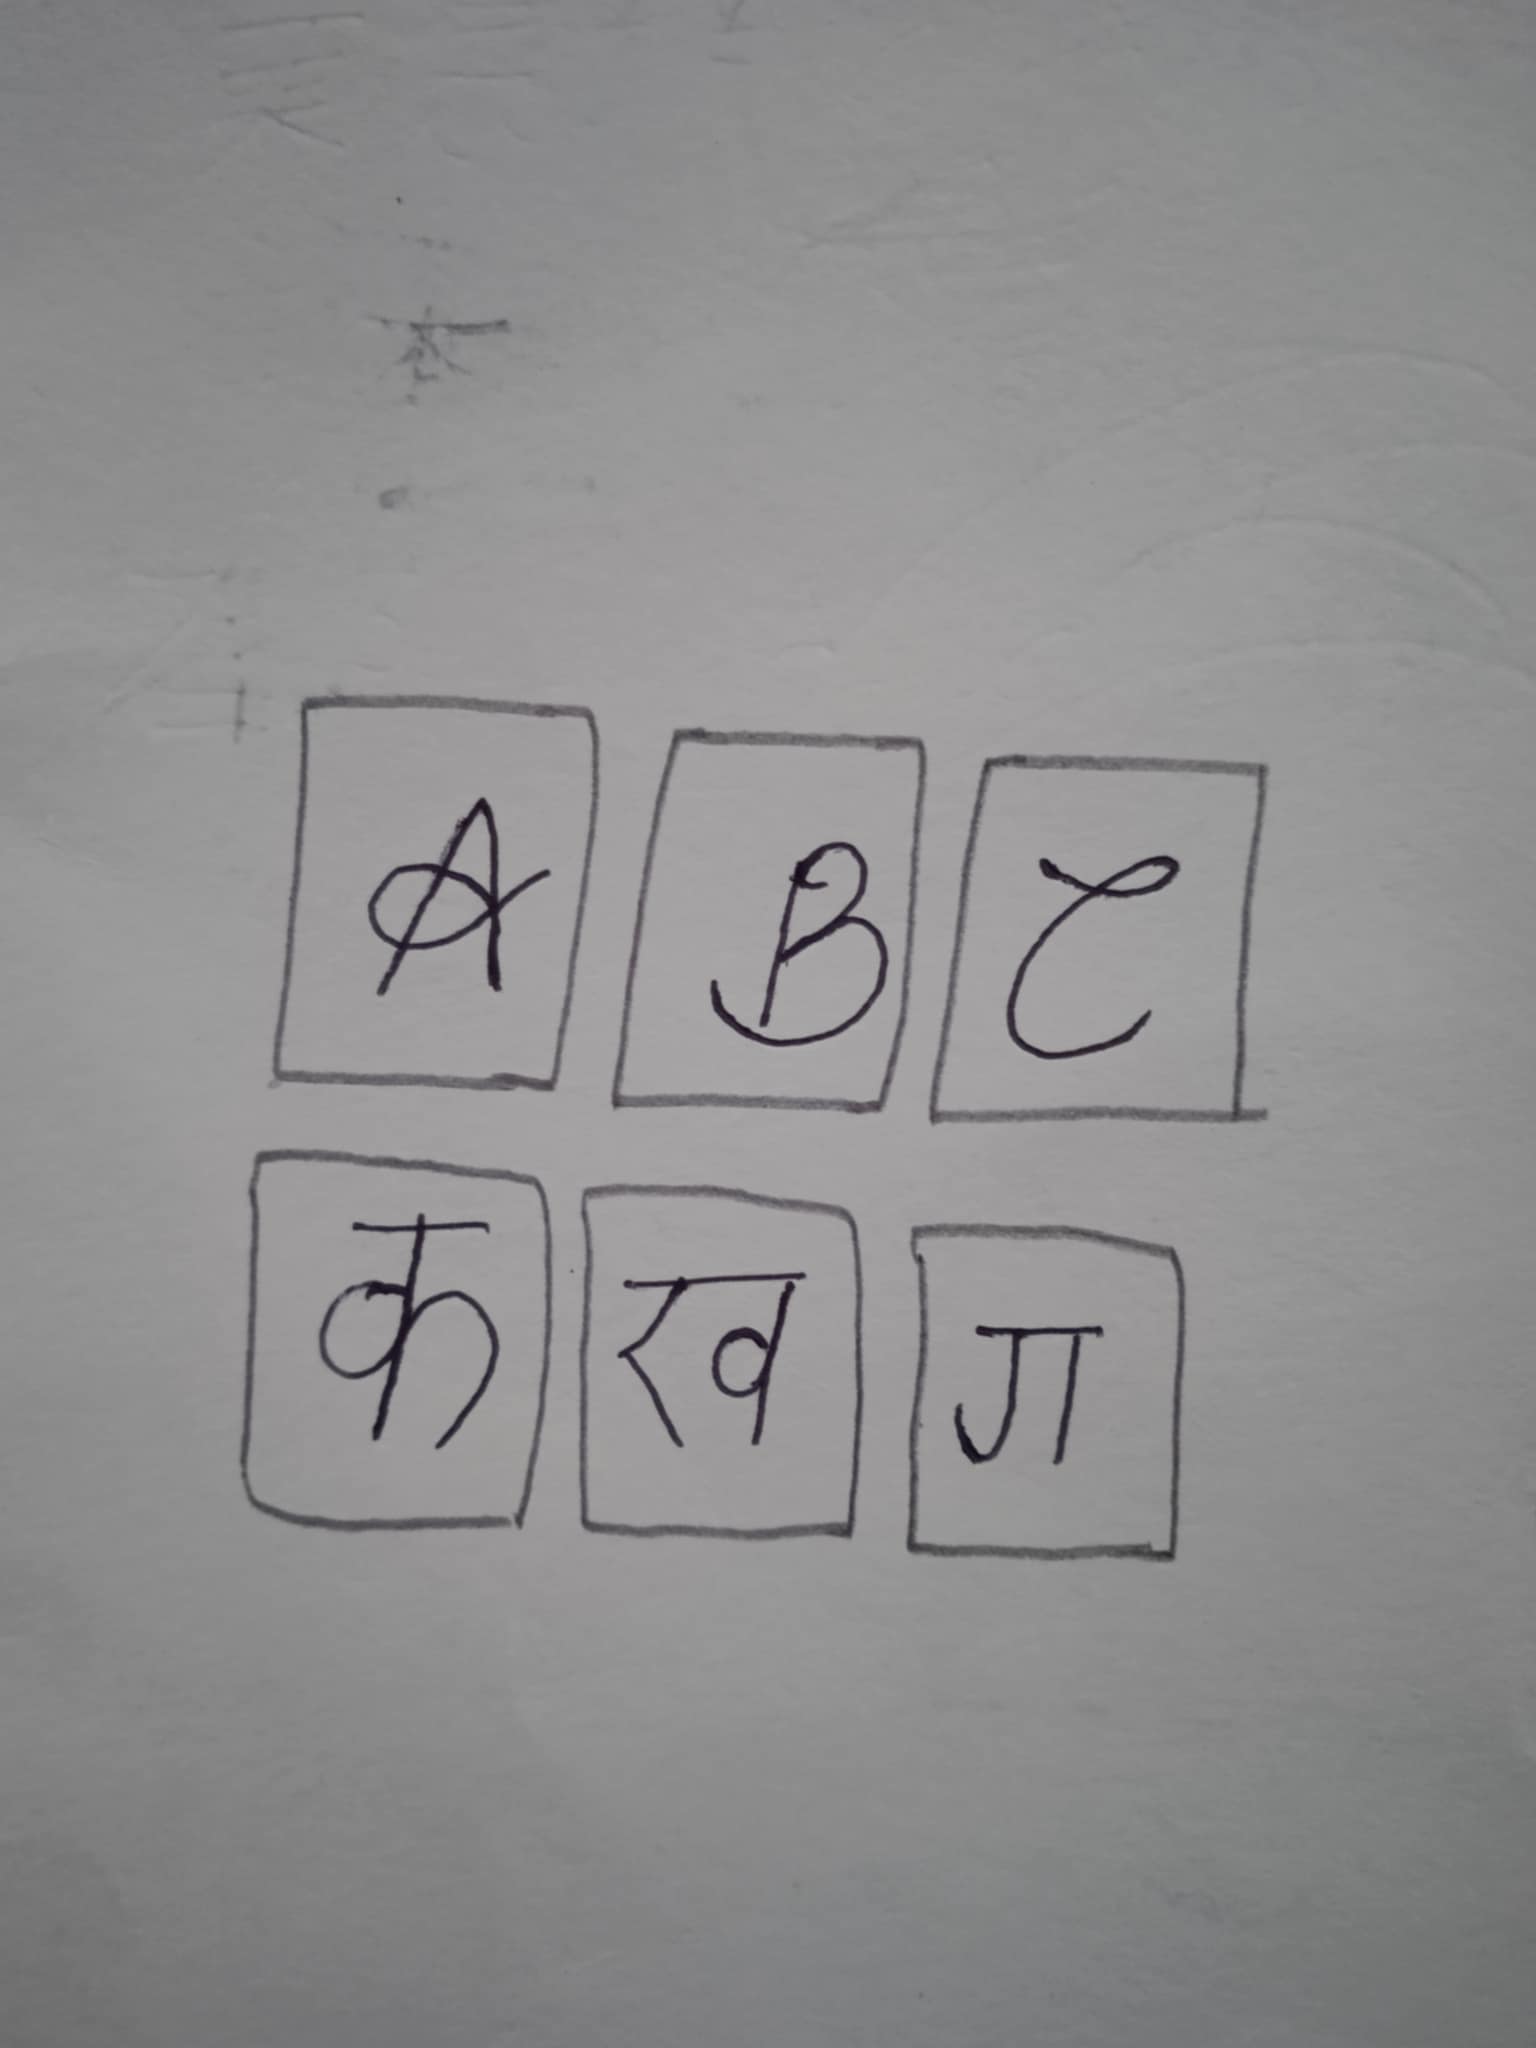 A B C
क ख ग